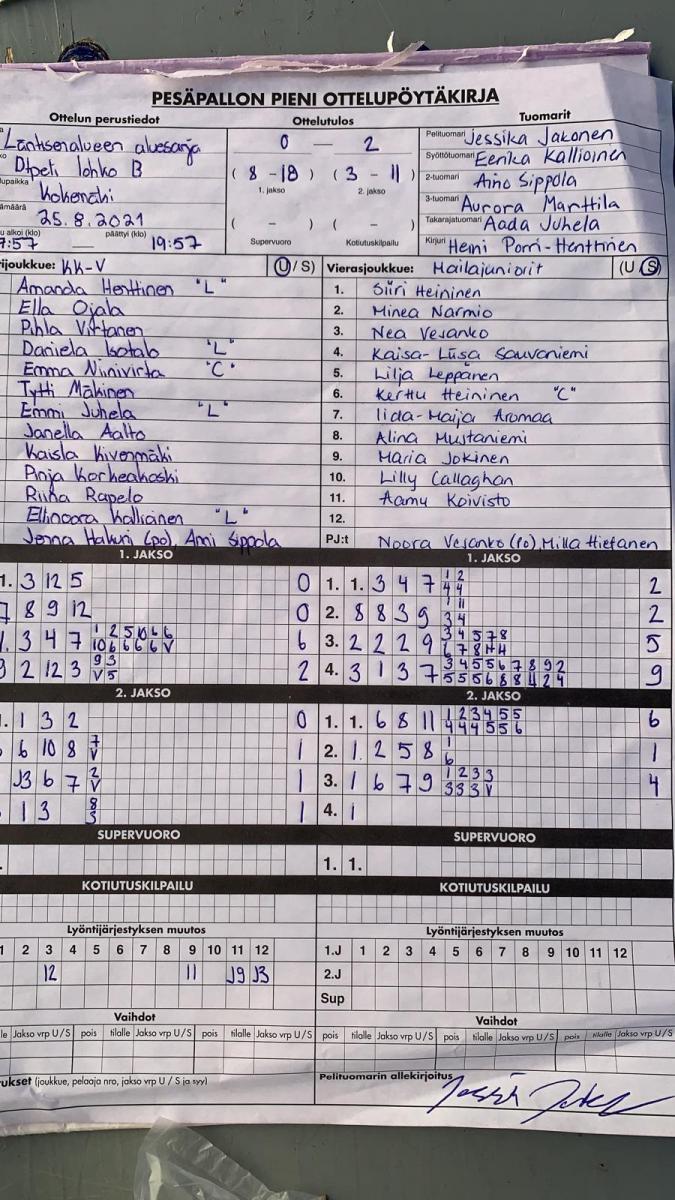 PESÄPALLON PIENI OTTELUPÖYTÄKIRJA
Ottelun perustiedot
Ottelutulos
Tuomarit
Läntisenalueen aluesarja
Dtpeli lohko B
lupaikka Kokemäki
ämäärä 25.8.2021
u alkoi (klo) päättyi (klo)
7:57 — 19:57
0 — 2
( 8 - 18 ) ( 3 - 11 )
1. jakso 2. jakso
( - ) ( - )
Supervuoro Kotiutuskilpailu
Pelituomari Jessika Jakonen
Syöttötuomari Eerika Kallioinen
2-tuomari Aino Sippola
3-tuomari Aurora Manttila
Takarajatuomari Aada Juhela
Kirjuri Heini Porri-Henttinen
rijoukkue: KK-V (U/S)
Amanda Henttinen "L"
Ella Ojala
Pihla Virtanen
Daniela Isotalo "L"
Emma Niinivirta "C"
Tytti Mäkinen
Emmi Juhela "L"
Janella Aalto
Kaisla Kivenmäki
Pinja Korkeakoski
Riina Rapelo
Ellinoora Kallioinen "L"
Jenna Hakuri (po), Anni Sippola
Vierasjoukkue: Mailajuniorit (U/S)
1. Siiri Heininen
2. Minea Narmio
3. Nea Vesanko
4. Kaisa-Liisa Sauvaniemi
5. Lilja Leppänen
6. Kerttu Heininen "C"
7. Iida-Maija Aromaa
8. Alina Mustaniemi
9. Maria Jokinen
10. Lilly Callaghan
11. Aamu Koivisto
12.
PJ:t Noora Vesanko (po), Milla Hietanen
1. JAKSO
1. 3 12 5 0
7 8 9 12 0
1. 3 4 7 1 2 5 10 6 6 6
10 6 6 6 6 V
9 2 12 3 9 3 2
V 5
1. JAKSO
1. 1. 3 4 7 1 2 2
4 4
2. 8 8 3 9 1 11 2
3 4
3. 2 2 2 9 3 4 5 7 8 5
6 7 8 11 11
4. 3 1 3 7 3 4 5 5 6 7 8 9 2 9
5 5 5 6 8 8 11 2 4
2. JAKSO
. 1 3 2 0
6 10 8 7 1
V
J3 6 7 2 1
V
1 3 8 1
3
2. JAKSO
1. 1. 6 8 11 1 2 3 4 5 5 6
4 4 4 5 5 6
2. 1. 2 5 8 1 1
6
3. 1 6 7 9 1 2 3 3 4
3 3 3 V
4. 1
SUPERVUORO
SUPERVUORO
1. 1.
KOTIUTUSKILPAILU
KOTIUTUSKILPAILU
Lyöntijärjestyksen muutos
1 2 3 4 5 6 7 8 9 10 11 12
12 11 J9 J3
Lyöntijärjestyksen muutos
1.J 1 2 3 4 5 6 7 8 9 10 11 12
2.J
Sup
Vaihdot
lle Jakso vrp U/S pois tilalle Jakso vrp U/S pois tilalle Jakso vrp U/S
Vaihdot
pois tilalle Jakso vrp U/S pois tilalle Jakso vrp U/S pois tilalle Jakso vrp U/S
ukset (joukkue, pelaaja nro, jakso vrp U / S ja syy)
Pelituomarin allekirjoitus